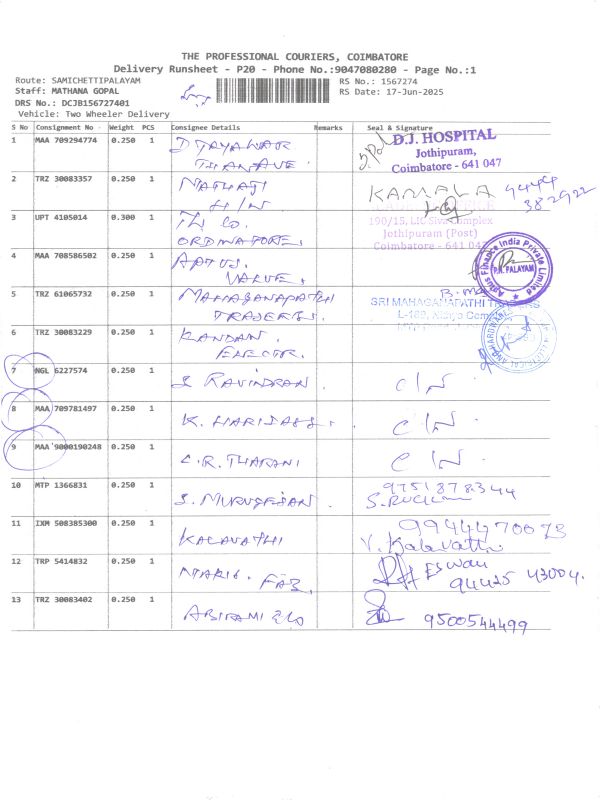 THE PROFESSIONAL COURIERS, COIMBATORE
Delivery Runsheet - P20 - Phone No.:9047080280 - Page No.:1
Route: SAMICHETTIPALAYAM
RS No.: 1567274
Staff: MATHANA GOPAL
RS Date: 17-Jun-2025
DRS No.: DCJB156727401
Vehicle: Two Wheeler Delivery
S No Consignment No Weight PCS Consignee Details Remarks Seal & Signature
1 MAA 709294774 0.250 1
D.J. HOSPITAL
Jothipuram,
Coimbatore - 641 047
2 TRZ 30083357 0.250 1
H/W
KAMALA
3 UPT 4105014 0.300 1 TH Co.
ORDINATORE.
190/15, LIC Siva Complex
Jothipuram (Post)
Coimbatore - 641 047
4 MAA 708586502 0.250 1
VALVE.
Finance India Private Limited
P.N. PALAYAM
5 TRZ 61065732 0.250 1 MAHAGANAPATHI
TRADERS.
SRI MAHAGANAPATHI TRADERS
6 TRZ 30083229 0.250 1 KANDAN
ELECTR.
7 NGL 6227574 0.250 1 S RAVINDRAN. C/N
8 MAA 709781497 0.250 1 K. HARIDASS. C/N
9 MAA 9000190248 0.250 1 C.R. THARANI C/N
10 MTP 1366831 0.250 1 S. MURUGESAN 9751878344
11 IXM 508385300 0.250 1 KALAVATHI
V. Kalavathi
12 TRP 5414832 0.250 1
FAB.
Eswari
94425 43004.
13 TRZ 30083402 0.250 1 ABIRAMI
9500544499